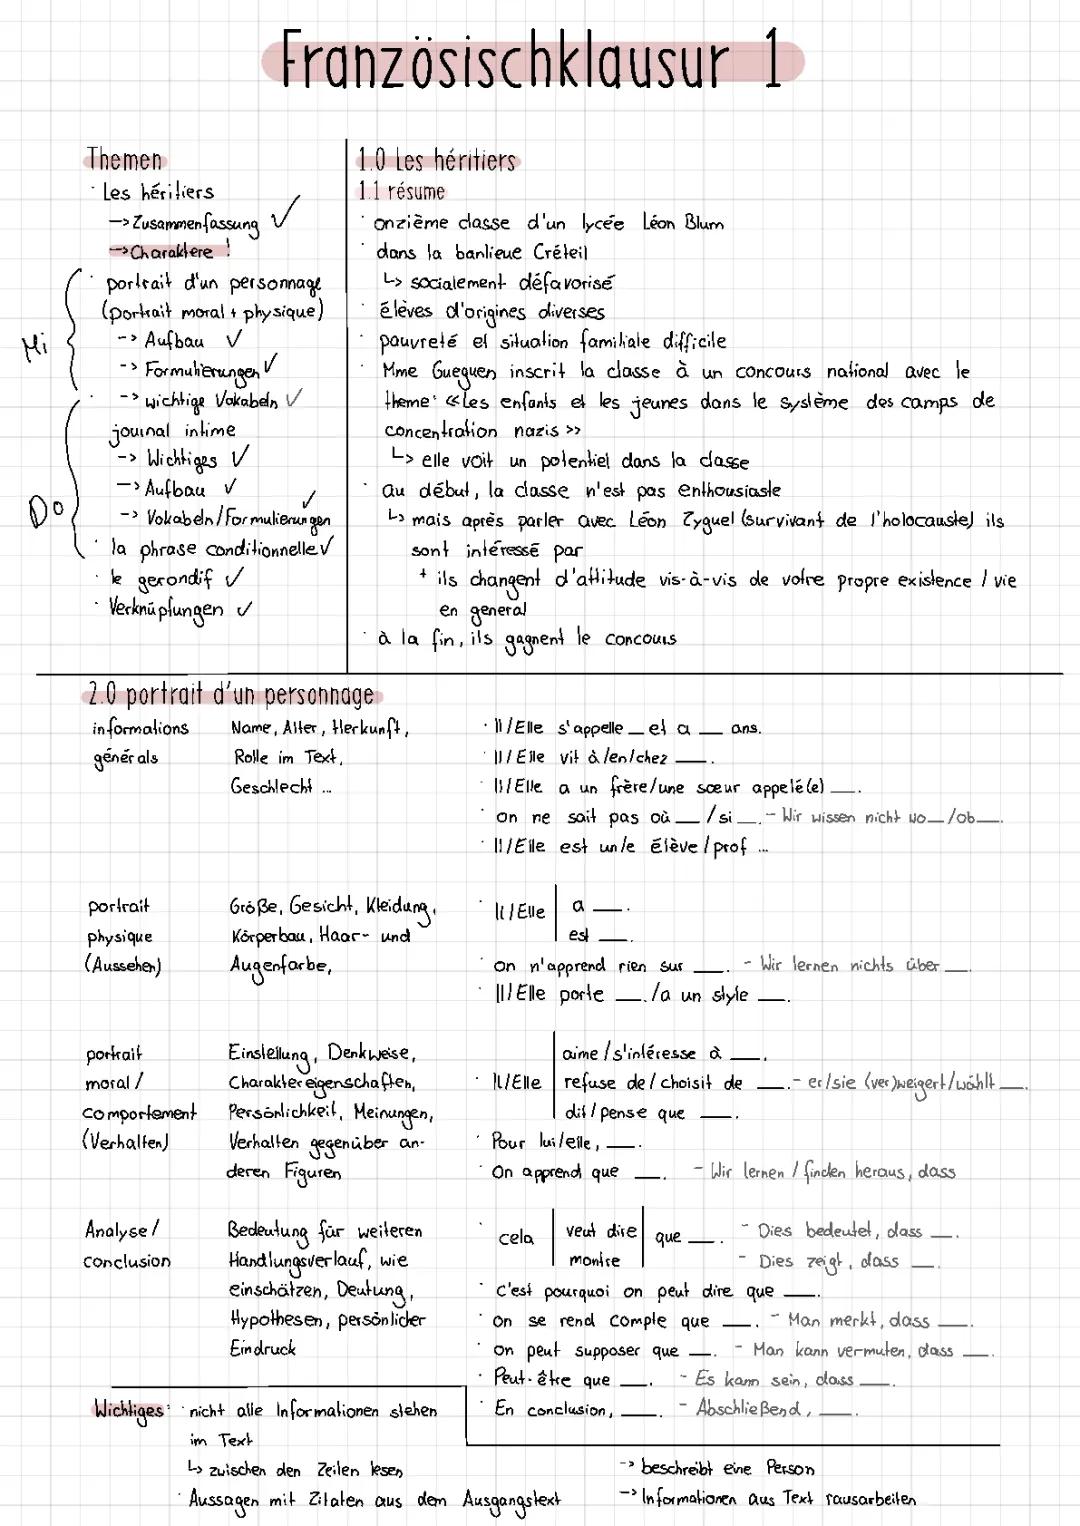 Französischklausur 1
Themen
· Les héritiers
-> Zusammenfassung ✓
-> Charaktere !
· portrait d'un personnage
(portrait moral + physique)
Mi
-> Aufbau ✓
-> Formulierungen ✓
-> wichtige Vokabeln ✓
· journal intime
-> Wichtiges ✓
-> Aufbau ✓
Do
-> Vokabeln/Formulierungen ✓
· la phrase conditionnelle ✓
· le gerondif ✓
· Verknüpfungen ✓
1.0 Les héritiers
1.1 résume
· onzième classe d'un lycée Léon Blum
· dans la banlieue Créteil
↳ socialement défavorisé
· élèves d'origines diverses
· pauvreté et situation familiale difficile
· Mme Gueguen inscrit la classe à un concours national avec le
theme: «Les enfants et les jeunes dans le système des camps de
concentration nazis >>
↳ elle voit un potentiel dans la classe
· au début, la classe n'est pas enthousiaste
↳ mais après parler avec Léon Zyguel (survivant de l'holocauste) ils
sont intéressé par
+ ils changent d'attitude vis-à-vis de votre propre existence / vie
en general
· à la fin, ils gagnent le concours
2.0 portrait d'un personnage
informations
générals
Name, Alter, Herkunft,
Rolle im Text,
Geschlecht ...
· Il/Elle s'appelle __ et a __ ans.
· Il/Elle vit à/en/chez __.
· Il/Elle a un frère/une sœur appelé(e) __.
· on ne sait pas où __ / si __. - Wir wissen nicht wo __/ob __.
· Il/Elle est un/e élève/prof ...
portrait
physique
(Aussehen)
Größe, Gesicht, Kleidung,
Körperbau, Haar- und
Augenfarbe,
· Il/Elle | a __.
est __.
· on n'apprend rien sur __. - Wir lernen nichts über __.
· Il/Elle porte __./a un style __.
portrait
moral /
comportement
(Verhalten)
Einstellung, Denkweise,
Charaktereigenschaften,
Persönlichkeit, Meinungen,
Verhalten gegenüber an-
deren Figuren
aime/s'intéresse à __.
· Il/Elle | refuse de/choisit de __. - er/sie (ver)weigert/wählt __.
dit/pense que __.
· Pour lui/elle, __.
· On apprend que __. - Wir lernen / finden heraus, dass
Analyse /
conclusion
Bedeutung für weiteren
Handlungsverlauf, wie
einschätzen, Deutung,
Hypothesen, persönlicher
Eindruck
· cela | veut dire | que __. - Dies bedeutet, dass __.
montre - Dies zeigt, dass __.
· C'est pourquoi on peut dire que __.
· on se rend compte que __. - Man merkt, dass __.
· on peut supposer que __. - Man kann vermuten, dass __.
· Peut-être que __. - Es kann sein, dass __.
· En conclusion, __. - Abschließend, __.
Wichtiges: · nicht alle Informationen stehen
im Text
↳ zwischen den Zeilen lesen
· Aussagen mit Zitaten aus dem Ausgangstext
-> beschreibt eine Person
-> Informationen aus Text rausarbeiten